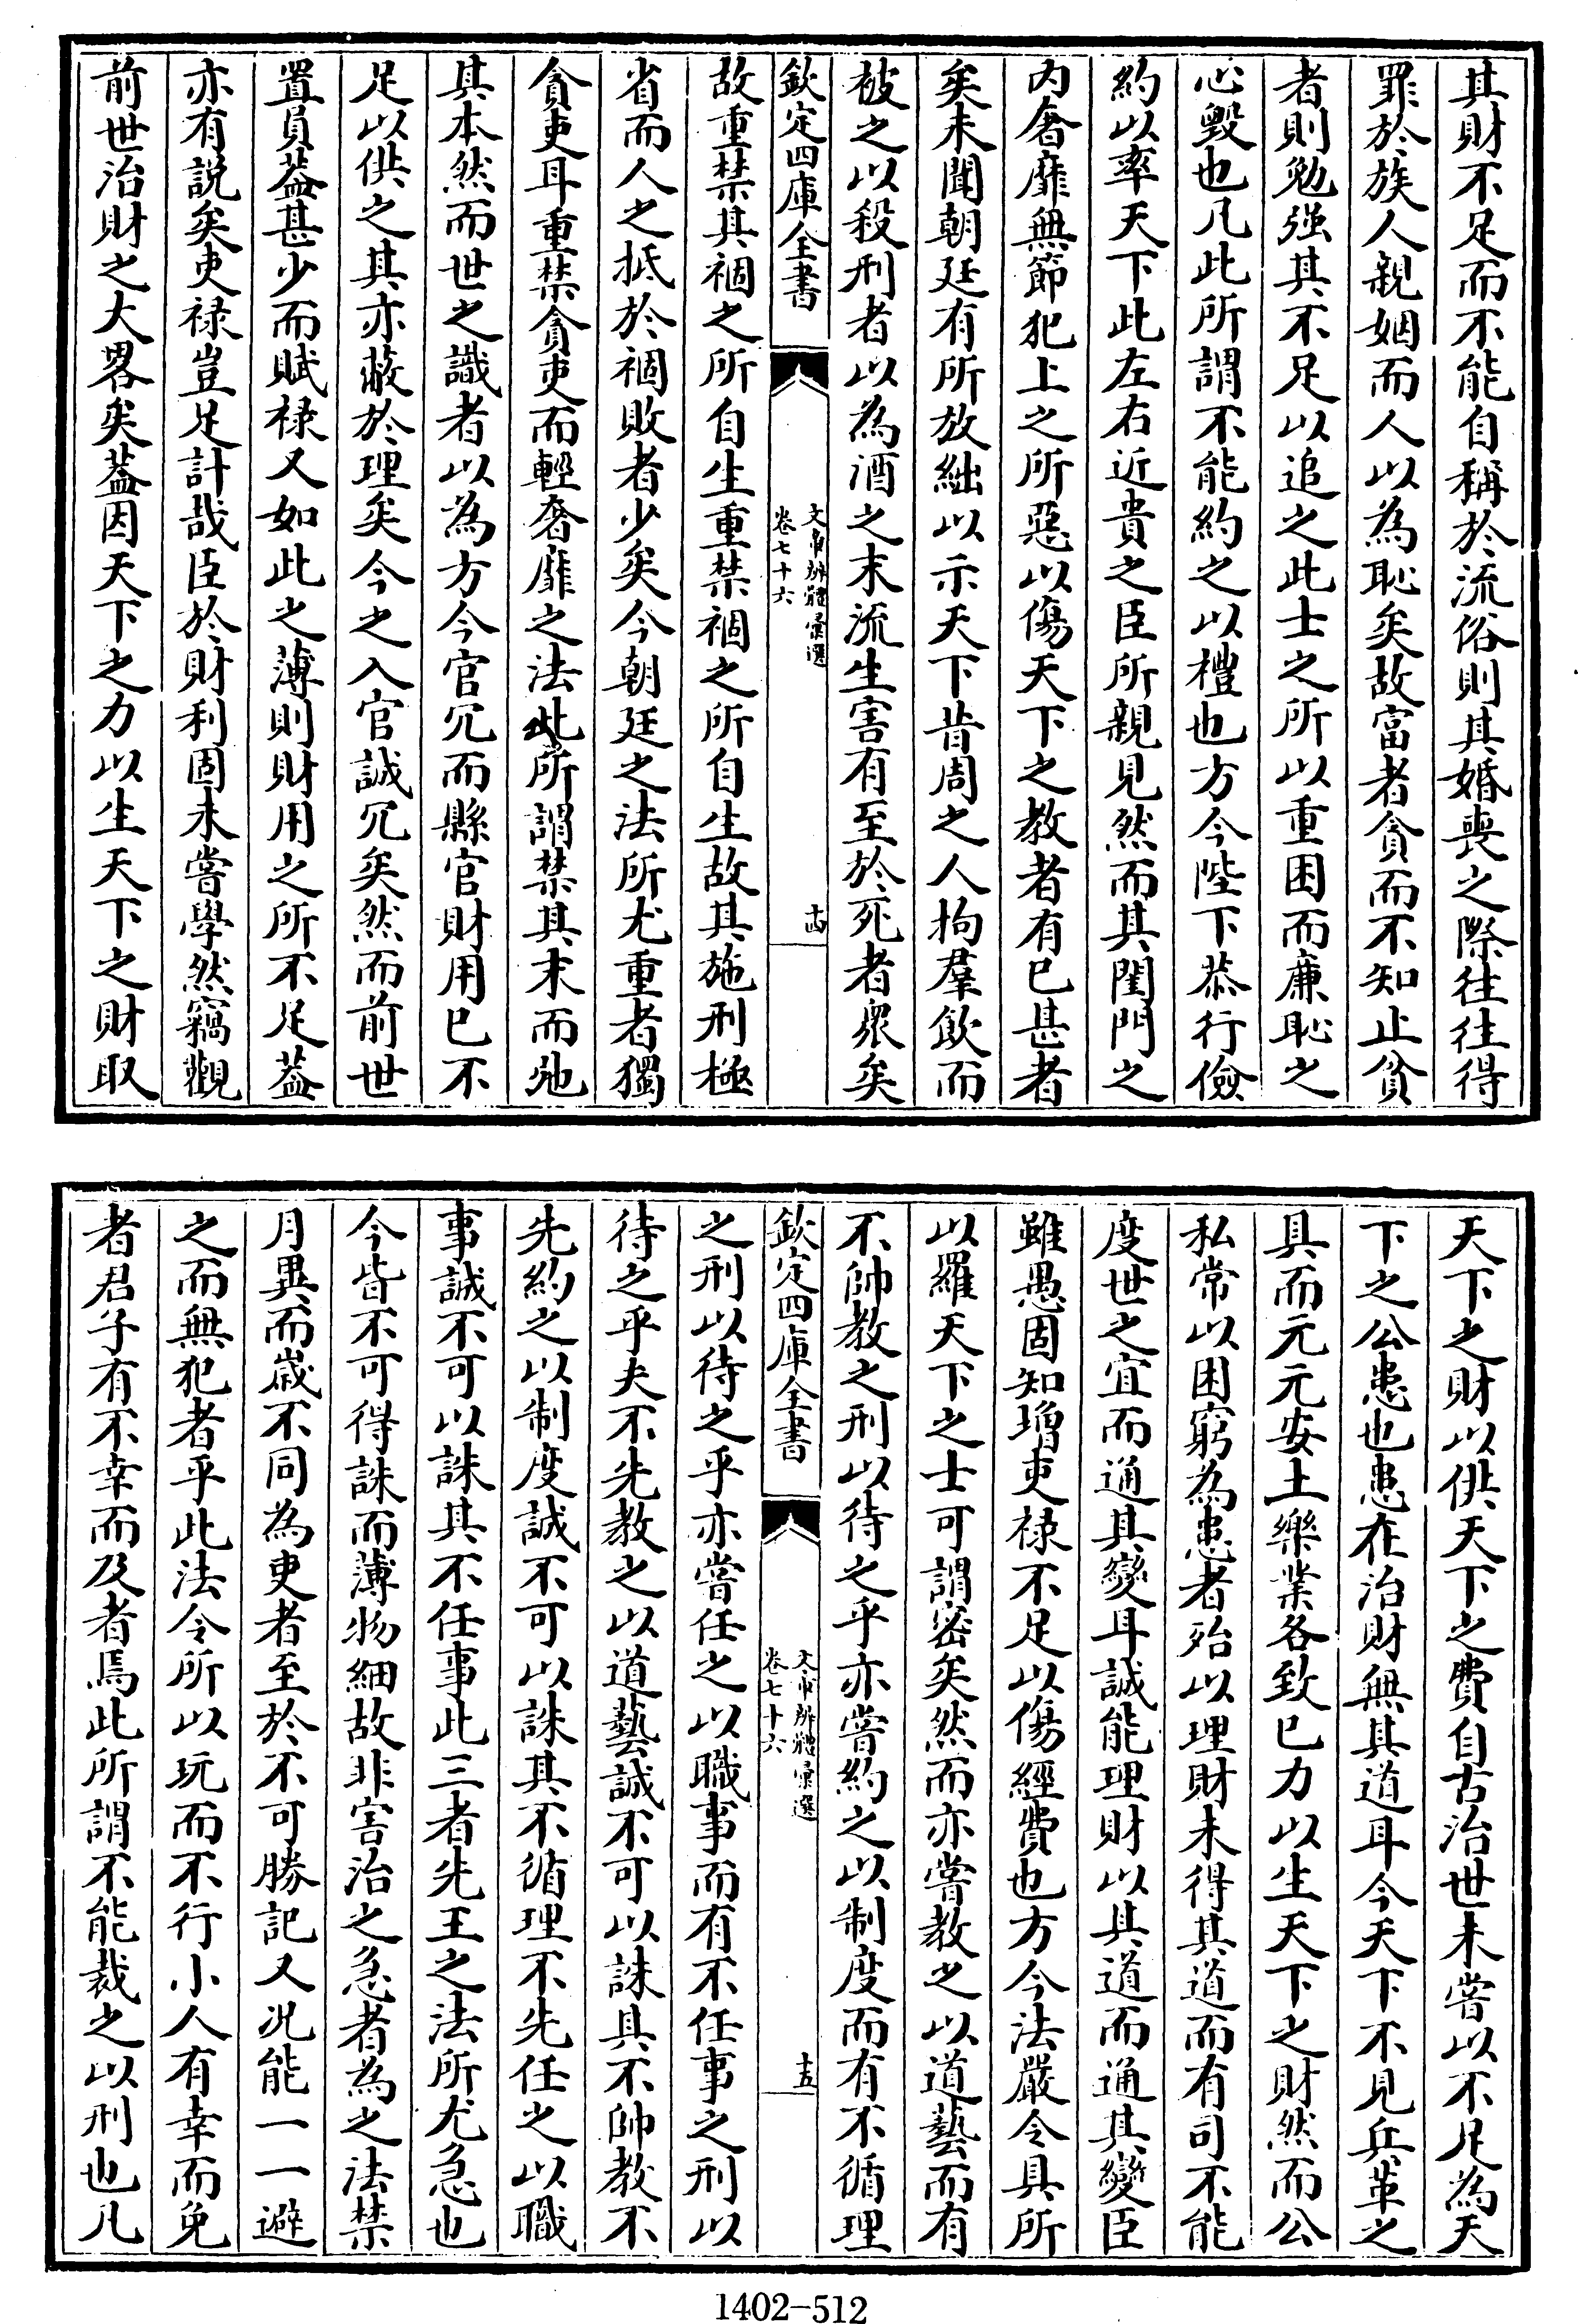 其財不足而不能自稱於流俗則其婚喪之際往往得
罪於族人親姻而人以為恥矣故富者貪而不知止貧
者則勉强其不足以追之此士之所以重困而廉恥之
心毀也凡此所謂不能約之以禮也方今陛下恭行儉
約以率天下此左右近貴之臣所親見然而其閨門之
内奢靡無節犯上之所惡以傷天下之教者有已甚者
矣未聞朝廷有所放絀以示天下昔周之人拘羣飲而
被之以殺刑者以為酒之末流生害有至於死者衆矣
欽定四庫全書
文章辨體彙選
卷七十六
十四
故重禁其禍之所自生重禁禍之所自生故其施刑極
省而人之抵於禍敗者少矣今朝廷之法所尤重者獨
貪吏耳重禁貪吏而輕奢靡之法此所謂禁其末而弛
其本然而世之識者以為方今官冗而縣官財用已不
足以供之其亦蔽於理矣今之入官誠冗矣然而前世
置員葢甚少而賦祿又如此之薄則財用之所不足葢
亦有説矣吏祿豈足計哉臣於財利固未嘗學然竊觀
前世治財之大畧矣葢因天下之力以生天下之財取
天下之財以供天下之費自古治世未嘗以不足為天
下之公患也患在治財無其道耳今天下不見兵革之
具而元元安土樂業各致已力以生天下之財然而公
私常以困窮為患者殆以理財未得其道而有司不能
度世之宜而通其變耳誠能理財以其道而通其變臣
雖愚固知增吏祿不足以傷經費也方今法嚴令具所
以羅天下之士可謂密矣然而亦嘗教之以道藝而有
不帥教之刑以待之乎亦嘗約之以制度而有不循理
欽定四庫全書
文章辨體彙選
卷七十六
十五
之刑以待之乎亦嘗任之以職事而有不任事之刑以
待之乎夫不先教之以道藝誠不可以誅其不帥教不
先約之以制度誠不可以誅其不循理不先任之以職
事誠不可以誅其不任事此三者先王之法所尤急也
今皆不可得誅而薄物細故非害治之急者為之法禁
月異而歲不同為吏者至於不可勝記又况能一一避
之而無犯者乎此法令所以玩而不行小人有幸而免
者君子有不幸而及者焉此所謂不能裁之以刑也凡
1402-512